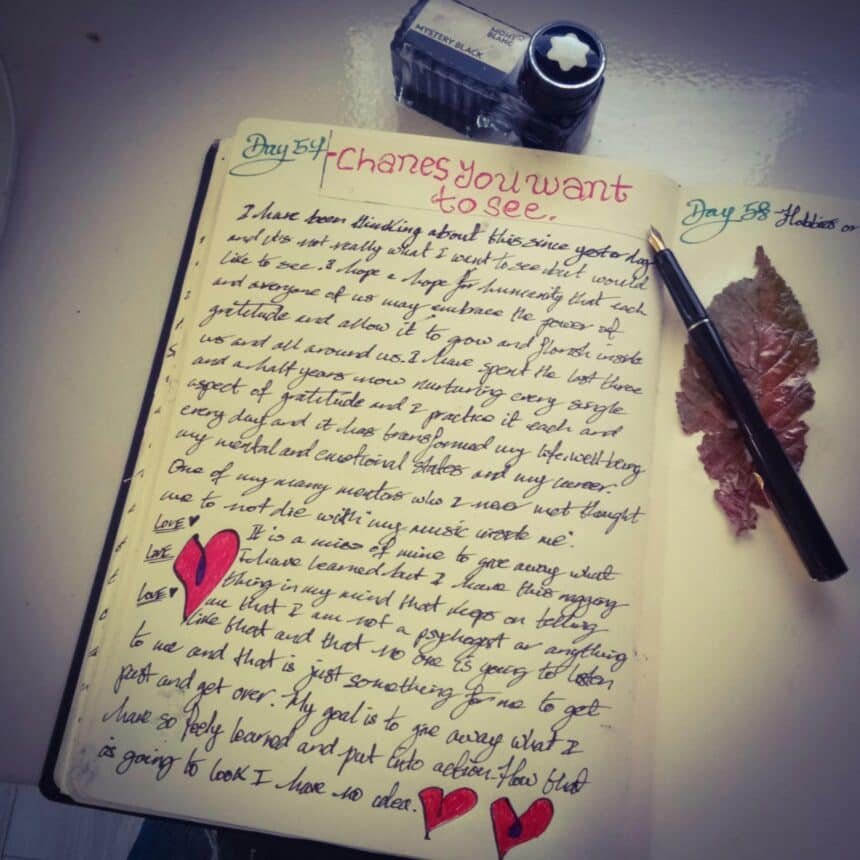 MONT
BLANC
MYSTERY BLACK
Day 57
Chanes you want
to see.
I have been thinking about this since yesterday
and it's not really what I want to see but would
like to see. I hope a hope for humanity that each
and everyone of us may embrace the power of
gratitude and allow it to grow and florish inside
us and all around us. I have spent the last three
and a half years now nurturing every single
aspect of gratitude and I practice it each and
every day and it has transformed my life, well-being
my mental and emotional states and my career.
One of my many mentors who I never met thought
me to not die with my music inside me.
LOVE
It is a miss of mine to give away what
LOVE
I have learned but I have this nagging
thing in my mind that keeps on telling
LOVE
me that I am not a or anything
like that and that no one is going to listen
to me and that is just something for me to get
past and get over. My goal is to give away what I
have so learned and put into action. How that
is going to look I have no idea.
Day 58 - Hobbies or